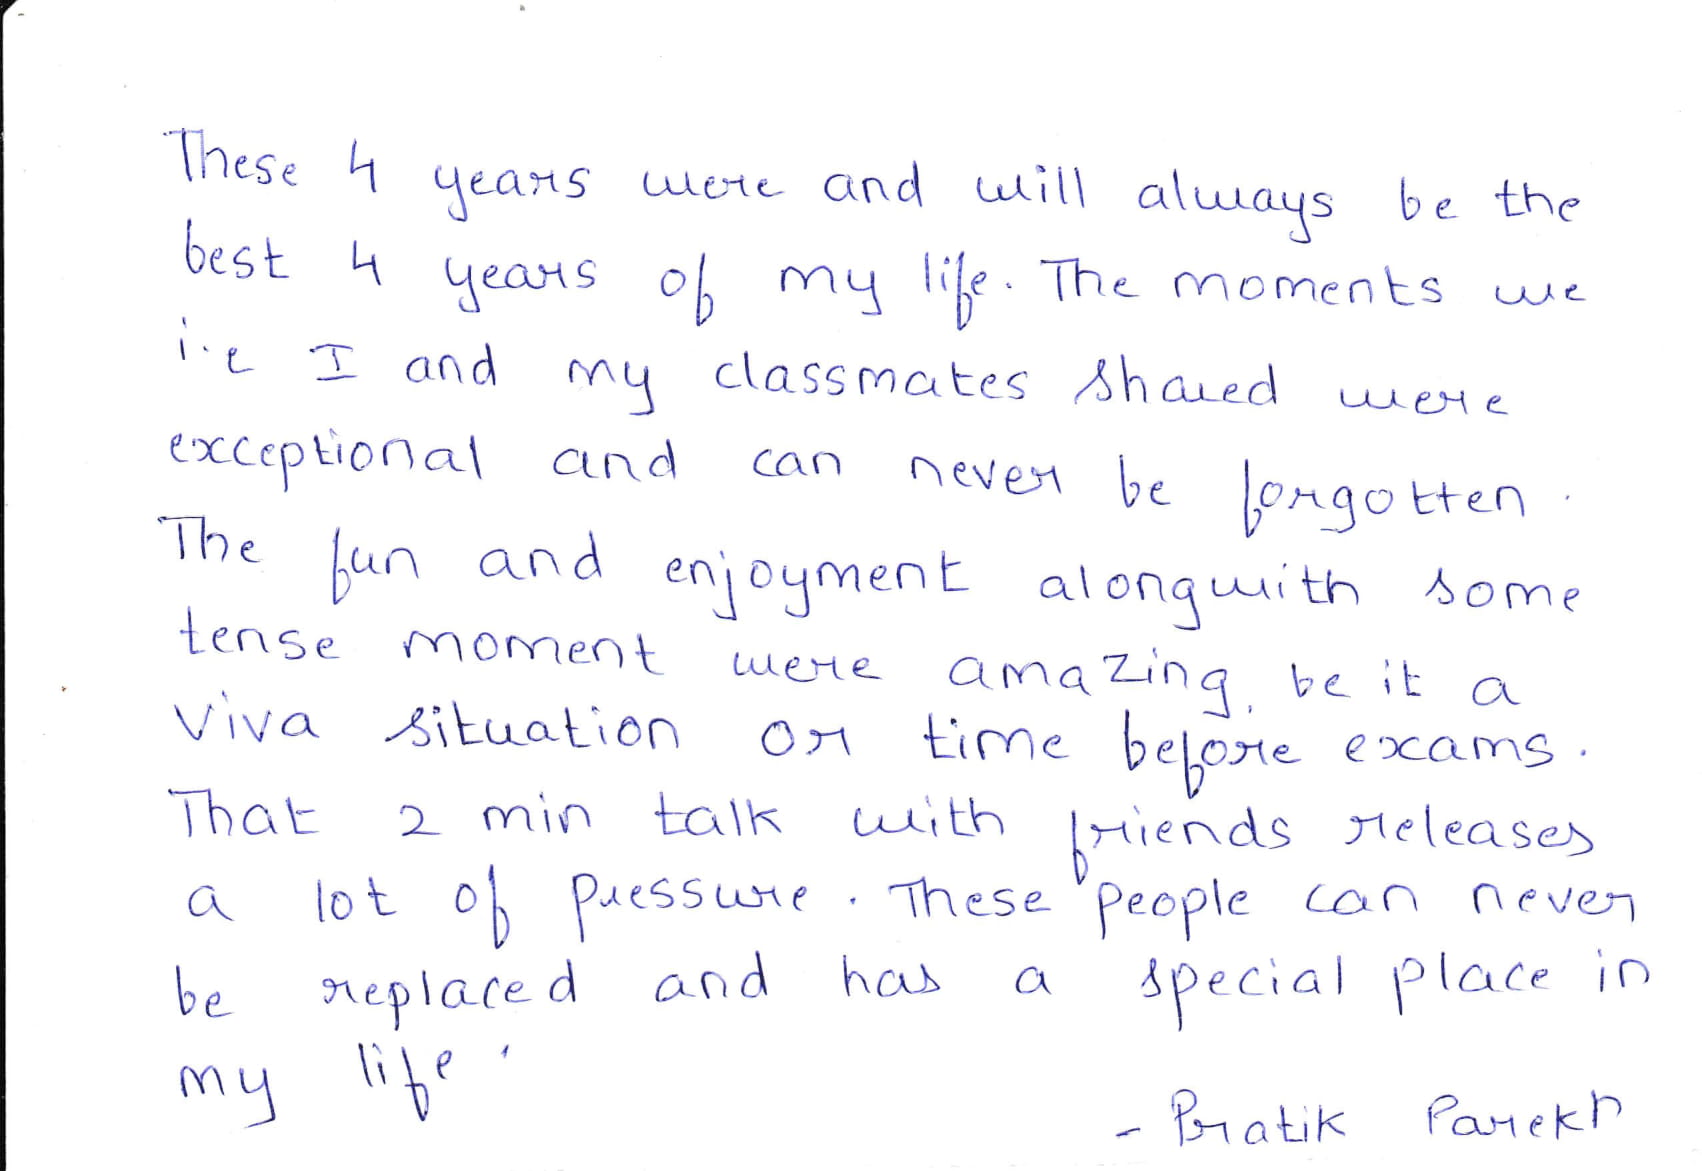 These 4 years were and will always be the
best 4 years of my life. The moments we
i.e I and my classmates shared were
exceptional and can never be forgotten.
The fun and enjoyment alongwith some
tense moment were amazing, be it a
viva situation or time before exams.
That 2 min talk with friends releases
a lot of pressure. These people can never
be replaced and has a special place in
my life.
- Pratik Parekh